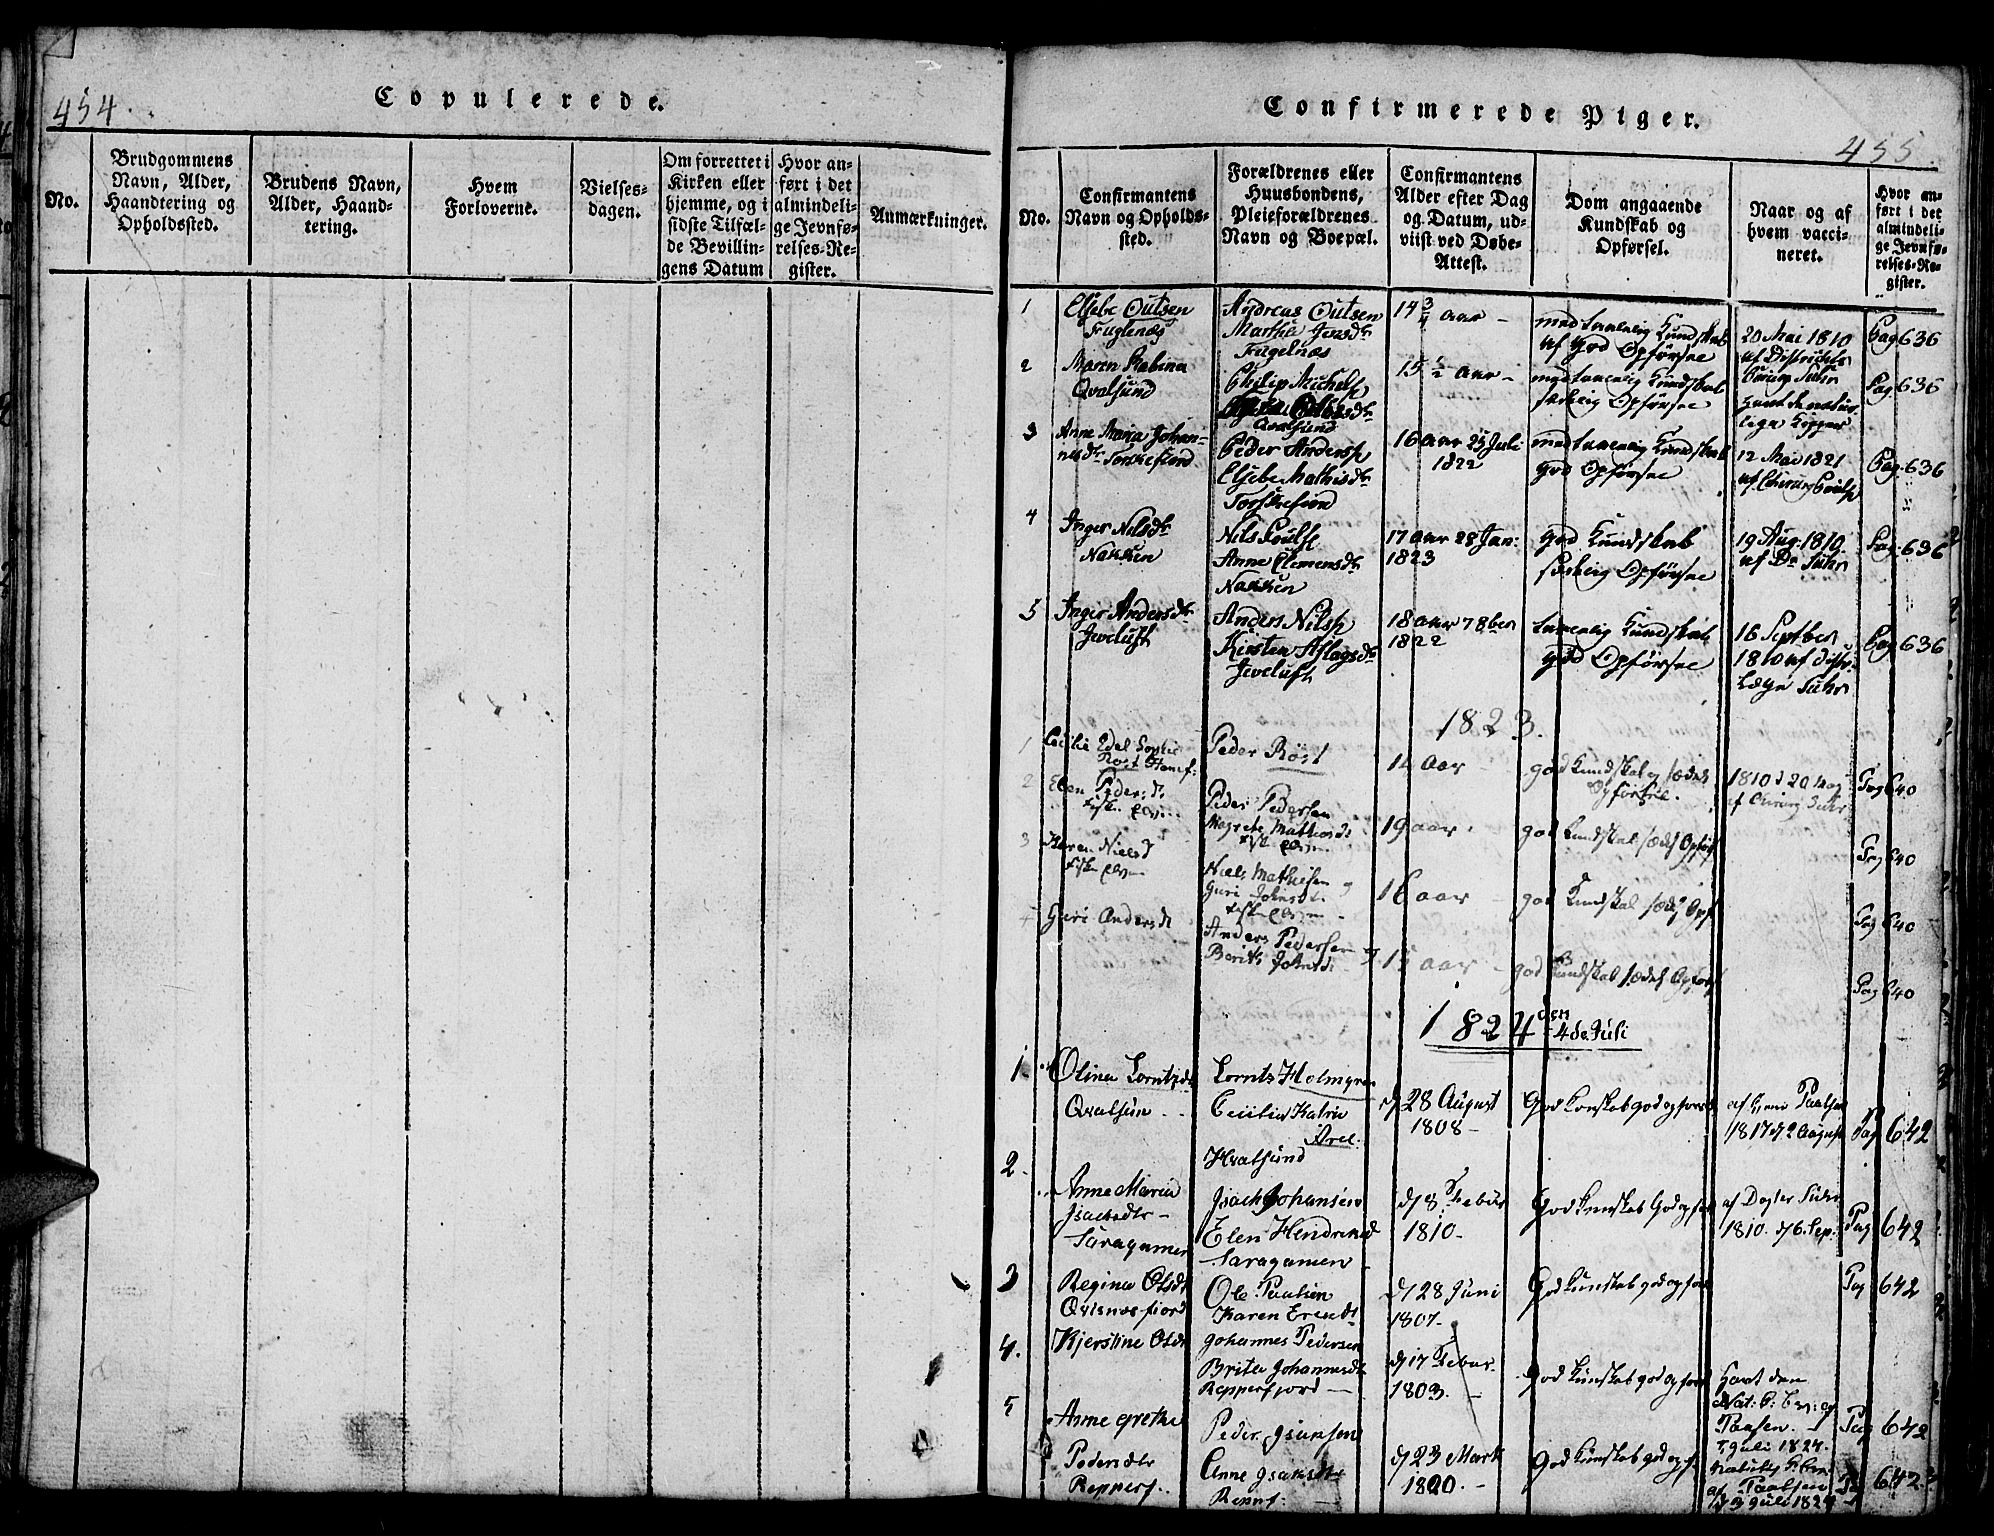 454.
Copulerede.
No.
Brudgommens
Navn, Alder,
Haandtering og
Opholdssted.
Brudens Navn,
Alder, Haand-
tering.
Hvem
Forloverne.
Vielses-
dagen.
Om forrettet i
Kirken eller
hjemme, og i
sidste Tilfæl-
de Bevillin-
gens Datum
Hvor an-
ført i det
almindeli-
ge Jevnfø-
relses-Re-
gister.
Anmærkninger.
Confirmerede Piger.
455.
No.
Confirmantens
Navn og Opholds-
sted.
Forældrenes eller
Huusbondens,
Pleieforældrenes
Navn og Boepæl.
Confirmantens
Alder efter Dag
og Datum, ud-
viist ved Døbe-
Attest.
Dom angaaende
Kundskab og
Opførsel.
Naar og af
hvem vacci-
neret.
Hvor an-
ført i det
almindeli-
ge Jevnfø-
relses-Re-
gister.
1
Elsebe Outsen
Fuglenæs
Andreas Outsen
Marthe Jensdr
Fugelnæs
14 3/4 aar -
med tavelig Kundskab
af god Opførsel
20 Mai 1810
af Districts
Chirurg Suhr
Pag 636
2
Maren Sabina
Qvalsund
Philip Michels
Qvalsund
15 1/2 aar -
med tavelig Kundskab
sædelig Opførsel
havt de natur-
lige Kopper
Pag 636
3
Anne Maria Johan-
nesdr Torskefiord
Peder Andersn
Elsebe Mathisdr
Torskefiord
16 aar 25 Juli
1822
med tavelig Kundskab
god Opførsel
12 Mai 1821
Pag. 636
4
Inger Nilsdr
Nakken
Nils Poulsn
Anne Clemensdr
Nakken
17 aar 28 Jan:
1823
god Kundskab
sædelig Opførsel
19 Aug. 1810
af Dr Suhr
Pag. 636
5
Inger Andersdr
Jeveluft
Anders Nilsn
Kirsten Aslagsdr
Jeveluft
18 aar 7 8ber
1822
tavelig Kundskab
god Opførsel
16 Septber
1810 af distr.
Læge Suhr
Pag 636
1823.
1
Cecilie Edel Sophie
Rost
Peder Röst
god Kundskab og sædel
Opførsel.
1810 d 20 Maj
af Chirurg Suhr
Pag 640
2
Elen Pedersd.
Peder Pedersen
Magrete Mathisd
19 aar
god Kundskab sædel Opførs
Pag 640
3
Karen Nielsd
Niels Mathisen og
Guri Johnsdr.
16 aar
god Kundskab sædel Opf
Pag 640
4
Guri Andersdr
Anders Pedersen og
Berith Johnsd
15 aar -
god Kundskab sædel Opførs
Pag 640
1824 den 4de Juli
1.
Olina Lorntzdr
Qvalsun
Lornts Holmgren
Cecilia Katrin
Arel.
Hvalsund
d 28 August
1808 -
God Konskab god opførs
af Paulsen
1817 d 2 August
Pag 642
2.
Anne Maria
Isachsdtr -
Saragamen
Isach Johansen
Elen Hendriksd
Saragamen
d 8 Febur
1810 -
God Kunskab God opfør
af Dogter Suhr
1810. d 6. Sep.
Pag 642
3
Regina Olsdt
Qvisnesfiord
Ole Paulsen
Karen Ericsdt
d 28 Juni
1807 -
God Kunskab god opfør
Pag 642
4.
Kjerstine Olsdt
Johannes Pedersen
Brite Johannesdt
Repperfjord -
d 17 Febur.
1803. -
God Kunskab god opfør
Havt den
Paulsen.
Juli 1824.
Pag 642
5
Anne grethe
Pedersdtr
Repperf.
Peder Isaksen
Anne Isaksdtr
Repperf:
d 23 Mart
1800. -
God Kunskab god opf.
af Paulsen
d 3 Juli 1824
Pag 642